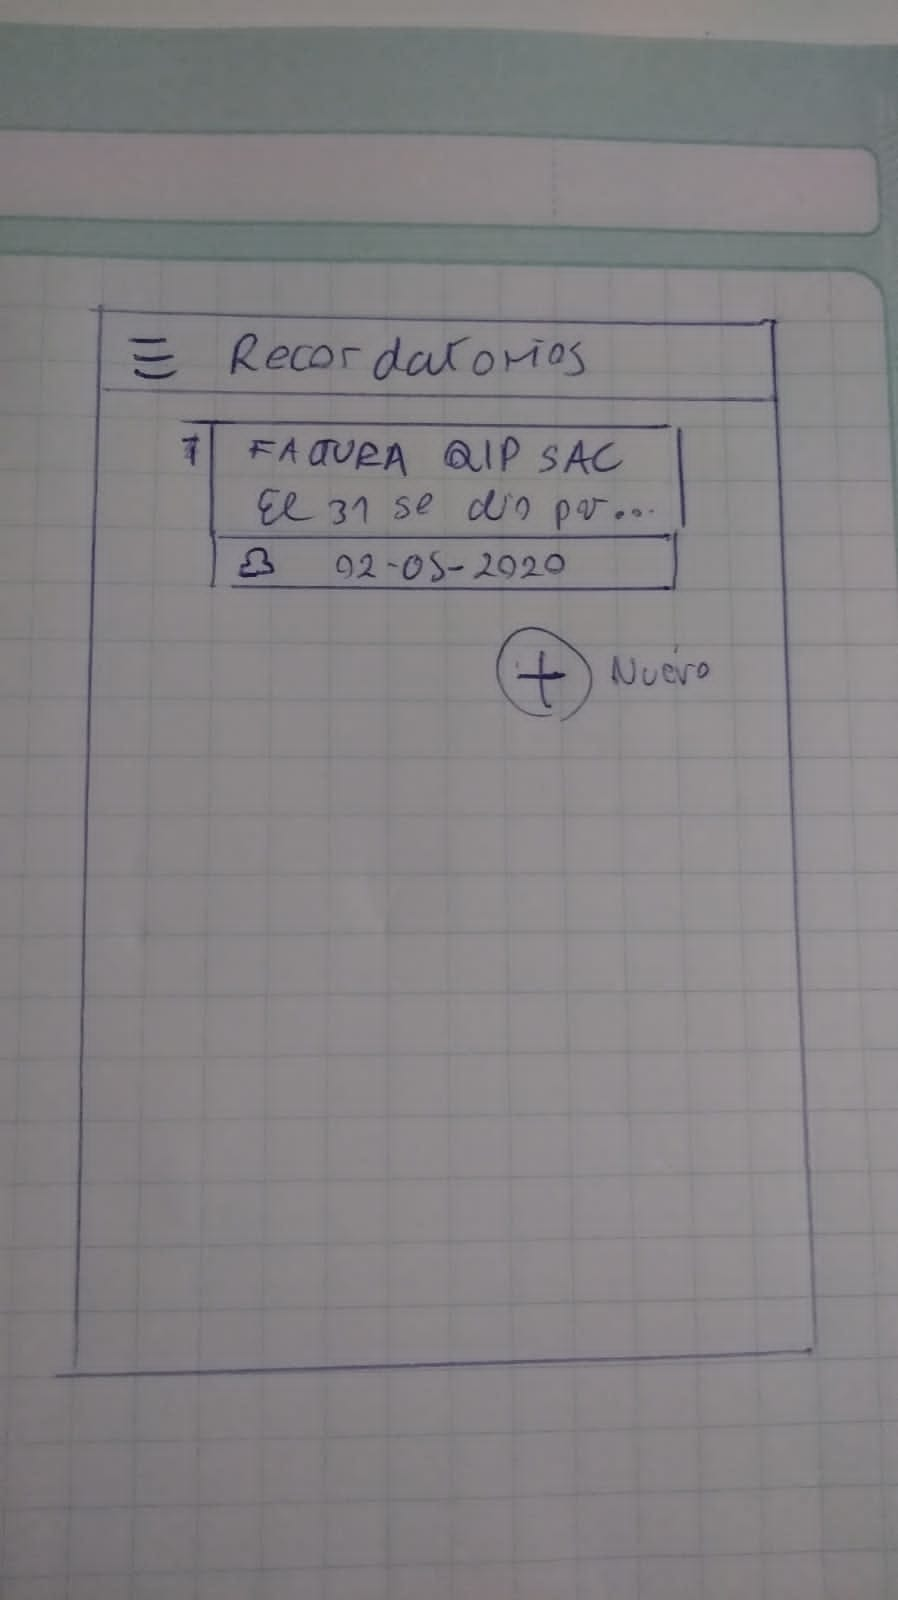 Recordatorios
1 FACTURA QIP SAC
El 31 se dio por...
02-05-2020
+ Nuevo